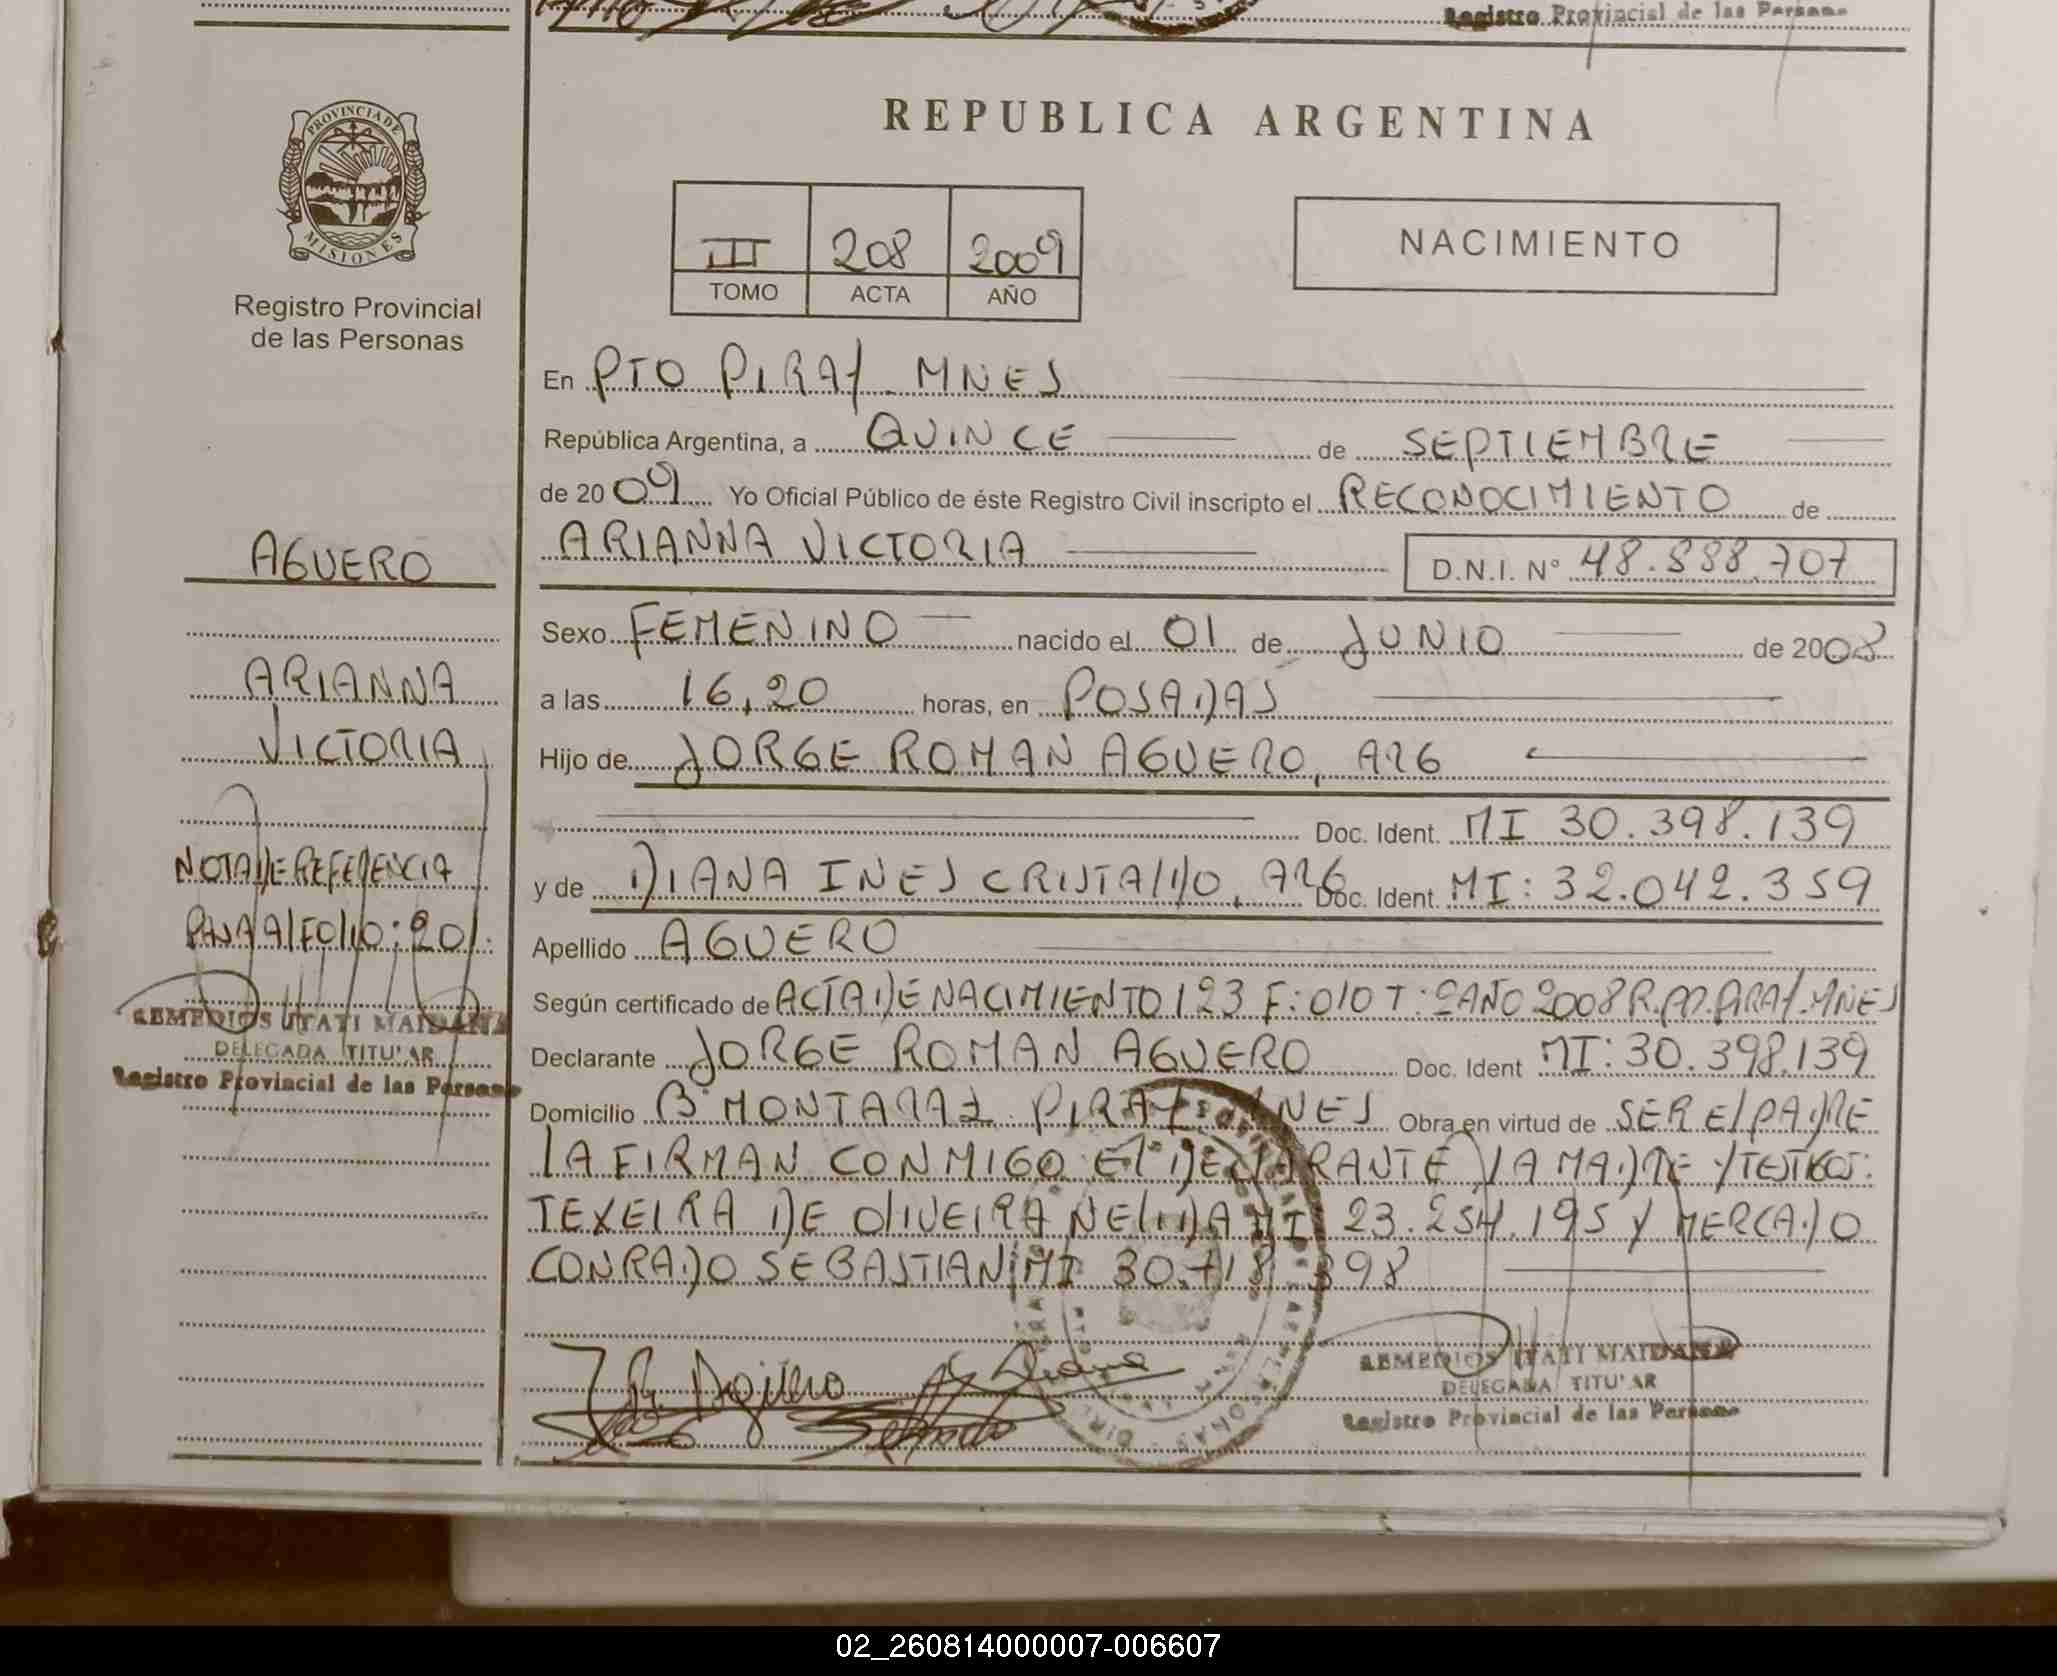 Registro Provincial de las Persona
PROVINCIA DE
MISIONES
Registro Provincial
de las Personas
REPUBLICA ARGENTINA
III 208 2009
TOMO ACTA AÑO
NACIMIENTO
En PTO PIRAY - MNES
República Argentina, a QUINCE de SEPTIEMBRE
de 2009 Yo Oficial Público de éste Registro Civil inscripto el RECONOCIMIENTO de
ARIANNA VICTORIA D.N.I. N° 48.888.707
Sexo FEMENINO nacido el 01 de JUNIO de 2008
a las 16,20 horas, en POSADAS
Hijo de JORGE ROMAN AGUERO, ARG
Doc. Ident. MI 30.398.139
y de DIANA INES CRISTALDO, ARG Doc. Ident. MI: 32.042.359
Apellido AGUERO
Según certificado de ACTA DE NACIMIENTO 123 F: 010 T: 2 AÑO 2008 R.P.P. PIRAY-MNES
Declarante JORGE ROMAN AGUERO Doc. Ident MI: 30.398.139
Domicilio B° MONTARAZ PIRAY MNES Obra en virtud de SER El PADRE
lA FIRMAN CONMIGO El DEClARANTE lA MADRE Y TESTIGOS:
TEXEIRA DE OlIVEIRA NElIDA MI 23.254.195 Y MERCADO
CONRADO SEBASTIAN MI 30.718.398
AGUERO
ARIANNA
VICTORIA
NOTA DE REFERENCIA
PASA Al FOlIO: 201.
REMEDIOS ITATI MAIDANA
DELEGADA TITU'AR
Registro Provincial de las Persona
J. R. Agüero Diana
REMEDIOS ITATI MAIDANA
DELEGADA TITU'AR
Registro Provincial de las Persona
02_260814000007-006607